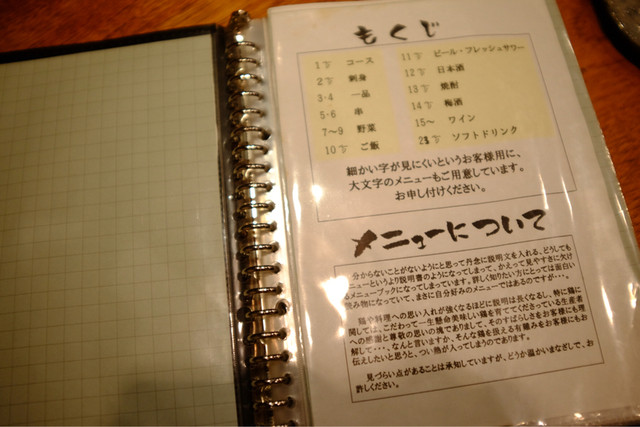 もくじ
1㌻ コース
2㌻ 刺身
3-4 一品
5-6 串
7〜9 野菜
10㌻ ご飯
11㌻ ビール・フレッシュサワー
12㌻ 日本酒
13㌻ 焼酎
14㌻ 梅酒
15〜 ワイン
25㌻ ソフトドリンク
細かい字が見にくいというお客様用に、
大文字のメニューもご用意しています。
お申し付けください。
メニューについて
分からないことがないようにと思って丹念に説明文を入れる、どうしても
メニューというより説明書のようになってしまって、かえって見やすさに欠け
るメニューブックになってしまいます。詳しく知りたい方にとっては面白い
読み物になっていて、まさに自分好みのメニューではあるのですが・・・。
鶏や料理への思い入れが強くなるほどに説明は長くなるし、特に鶏に
関しては、こだわって一生懸命美味しい鶏を育ててくださっている生産者
への感謝と尊敬の思いの塊でありまして、そのすばらしさをお客様にも理
解して・・・、なんと言いますか、そんな鶏を扱える有難みをお客様にもお
伝えしたいと思うと、つい熱が入ってしまうのであります。
見づらい点があることは承知していますが、どうか温かいまなざしで、お
許しください。